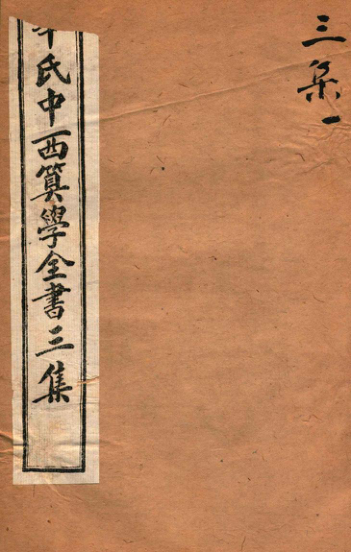 三集一
氏中西算學全書三集